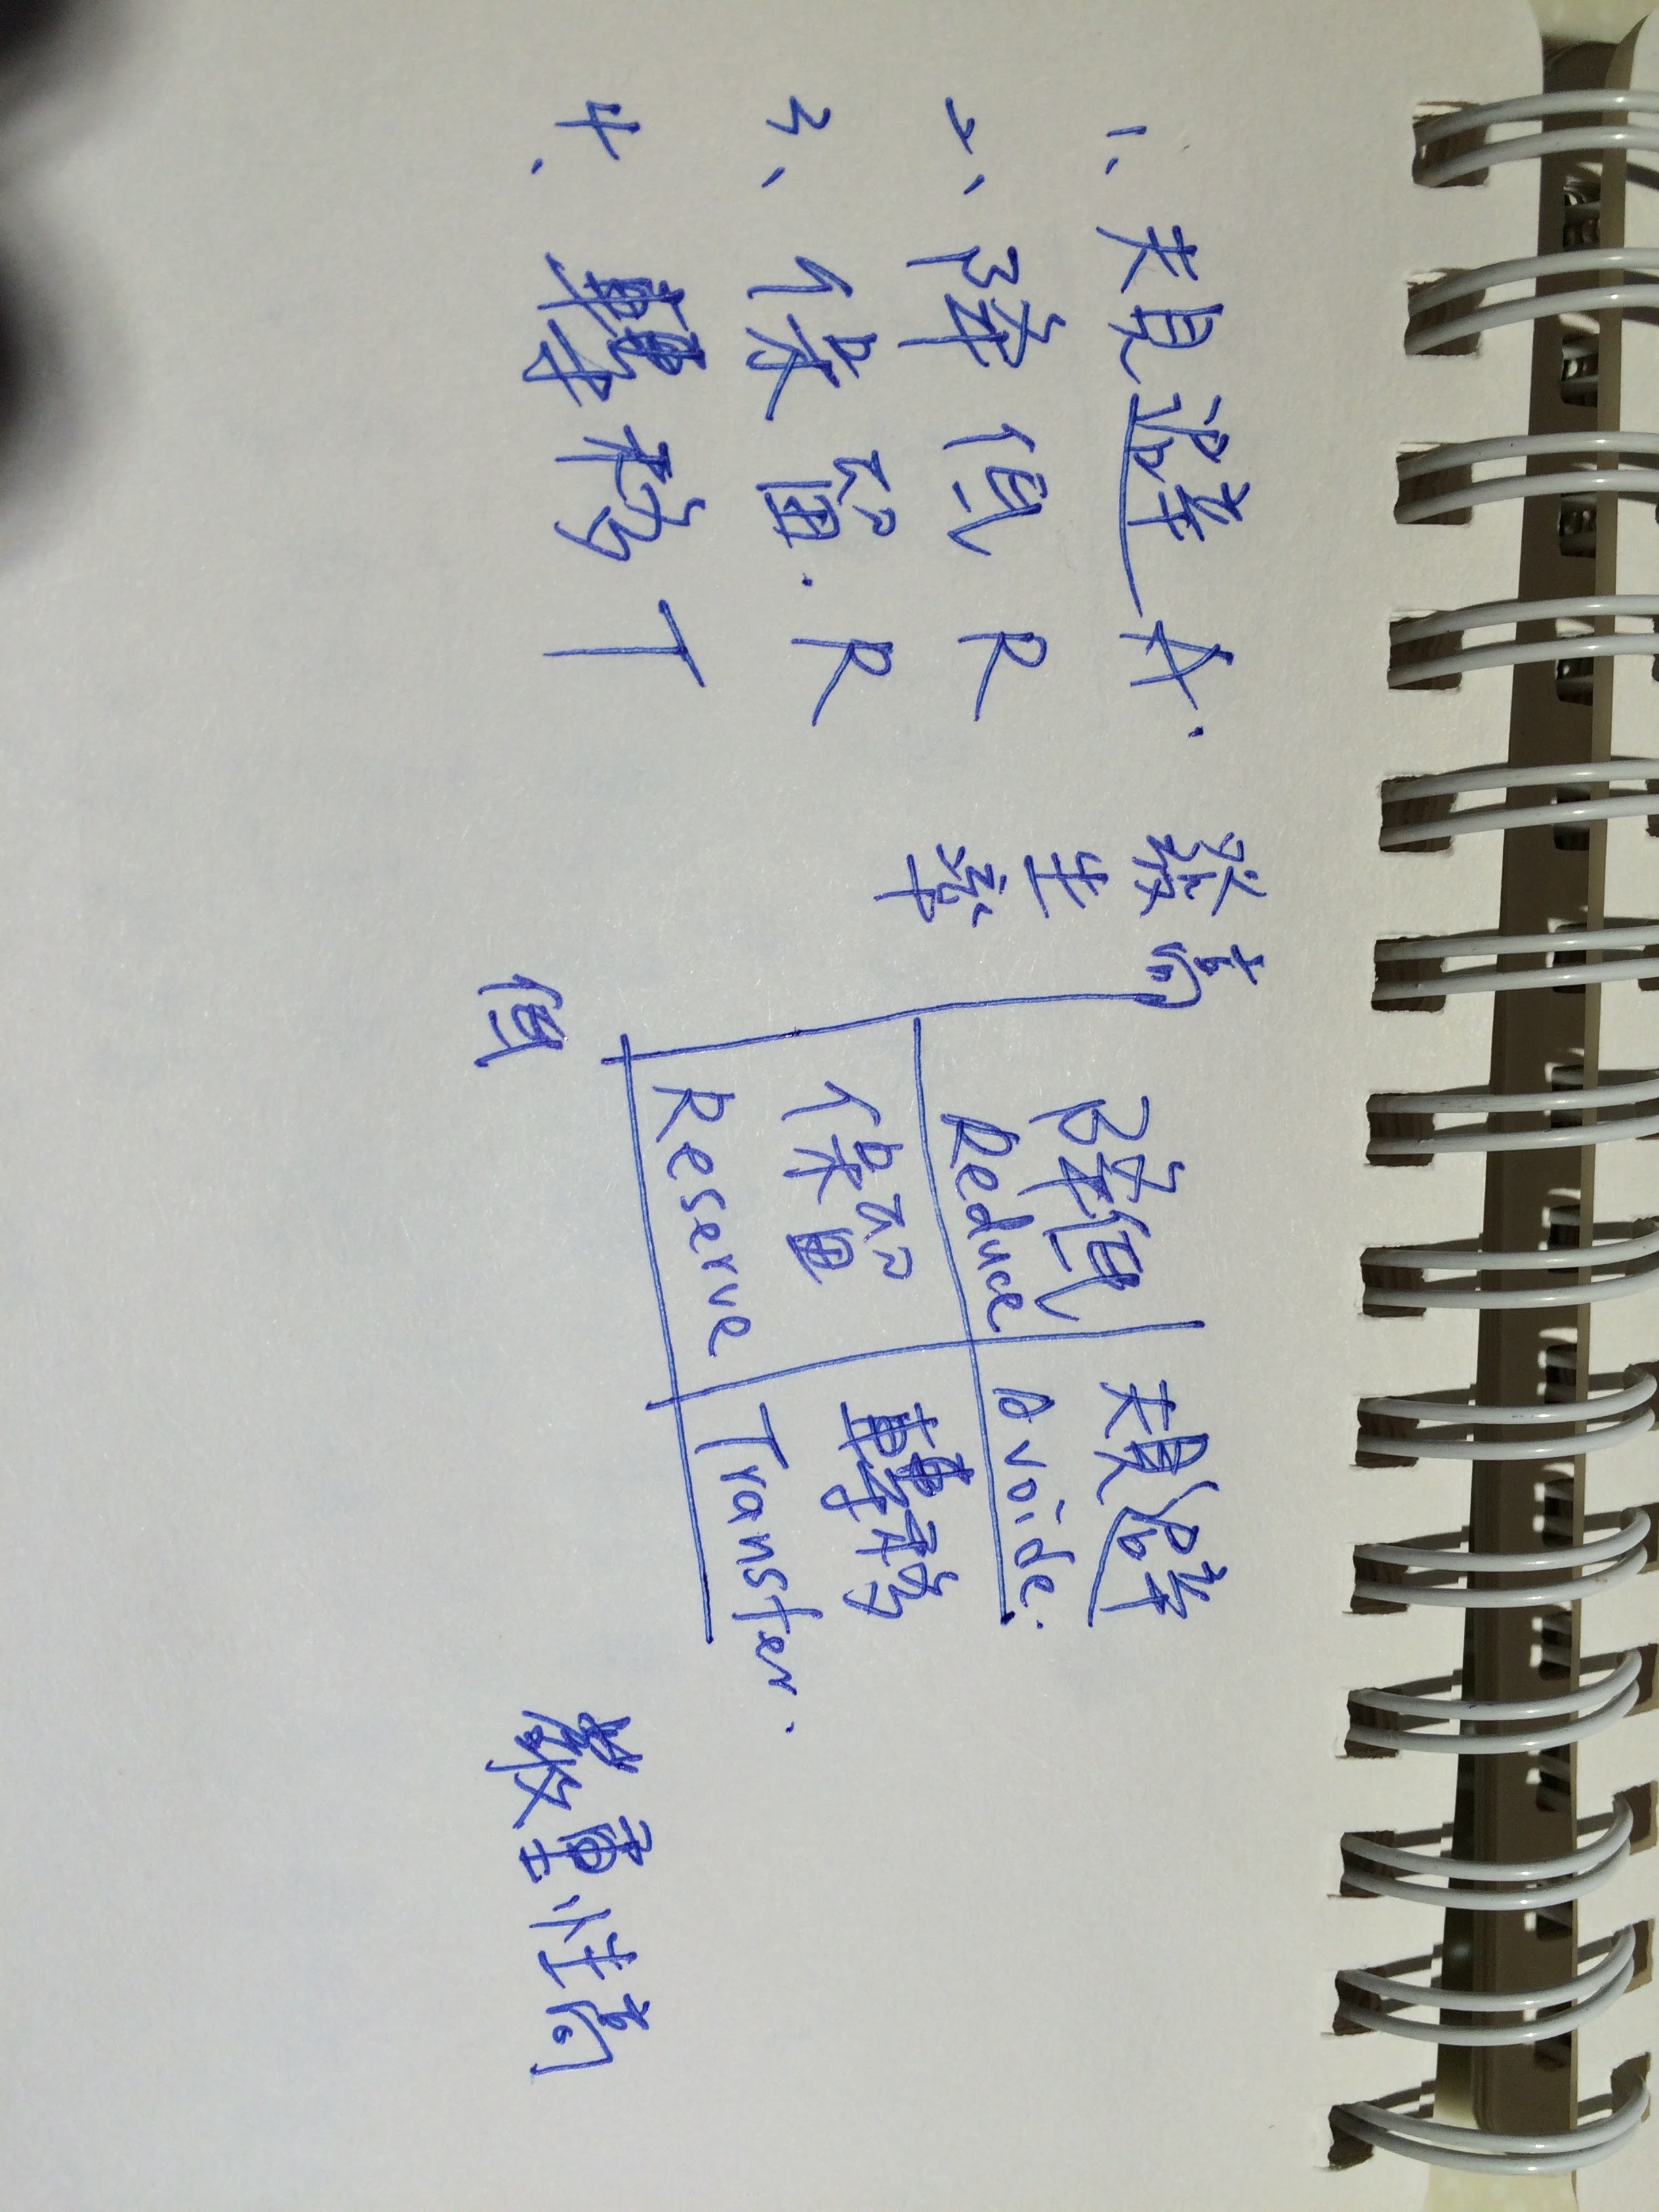 1、規避 A.
2、降低 R
3、保留. R
4、轉移 T
發生率
高
降低
Reduce
規避
Avoide.
保留
Reserve
轉移
Transfer.
低
嚴重性高